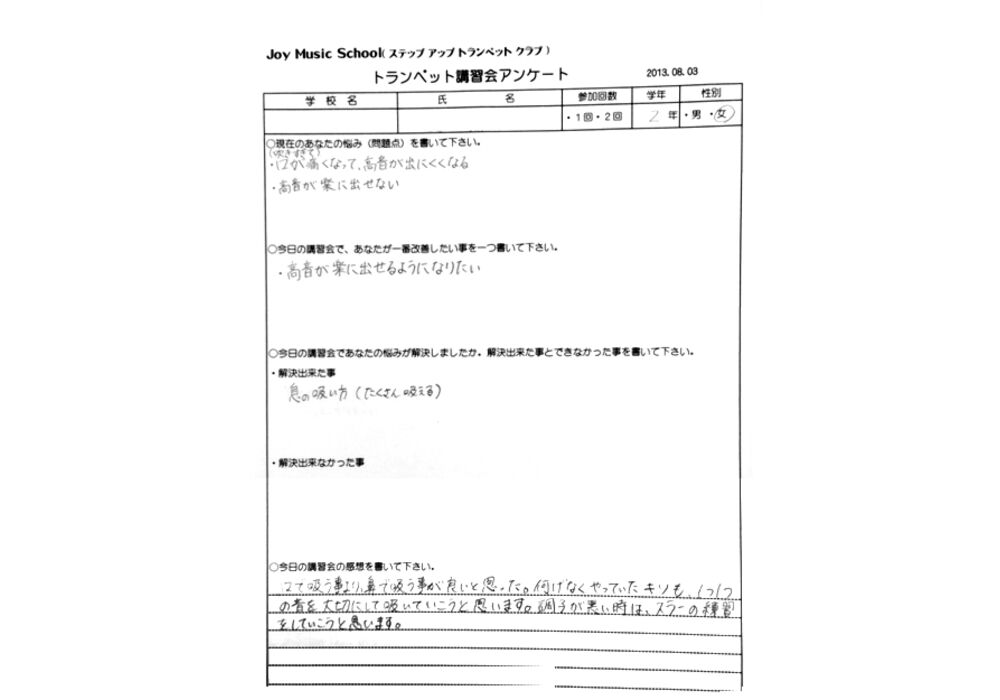 Joy Music School(ステップ アップ トランペット クラブ)
トランペット講習会アンケート 2013.08.03
学 校 名 氏 名 参加回数 学年 性別
・1回・2回 2 年 ・男 ・女
○現在のあなたの悩み(問題点)を書いて下さい。
(吹きすぎて)
・口が痛くなって、高音が出にくくなる
・高音が楽に出せない
○今日の講習会で、あなたが一番改善したい事を一つ書いて下さい。
・高音が楽に出せるようになりたい
○今日の講習会であなたの悩みが解決しましたか。解決出来た事とできなかった事を書いて下さい。
・解決出来た事
息の吸い方(たくさん吸える)
・解決出来なかった事
○今日の講習会の感想を書いて下さい。
口で吸う事より、鼻で吸う事が良いと思った。何げなくやっていたキソも、1つ1つ
の音を大切にして吹いていこうと思います。調子が悪い時は、スラーの練習
をしていこうと思います。